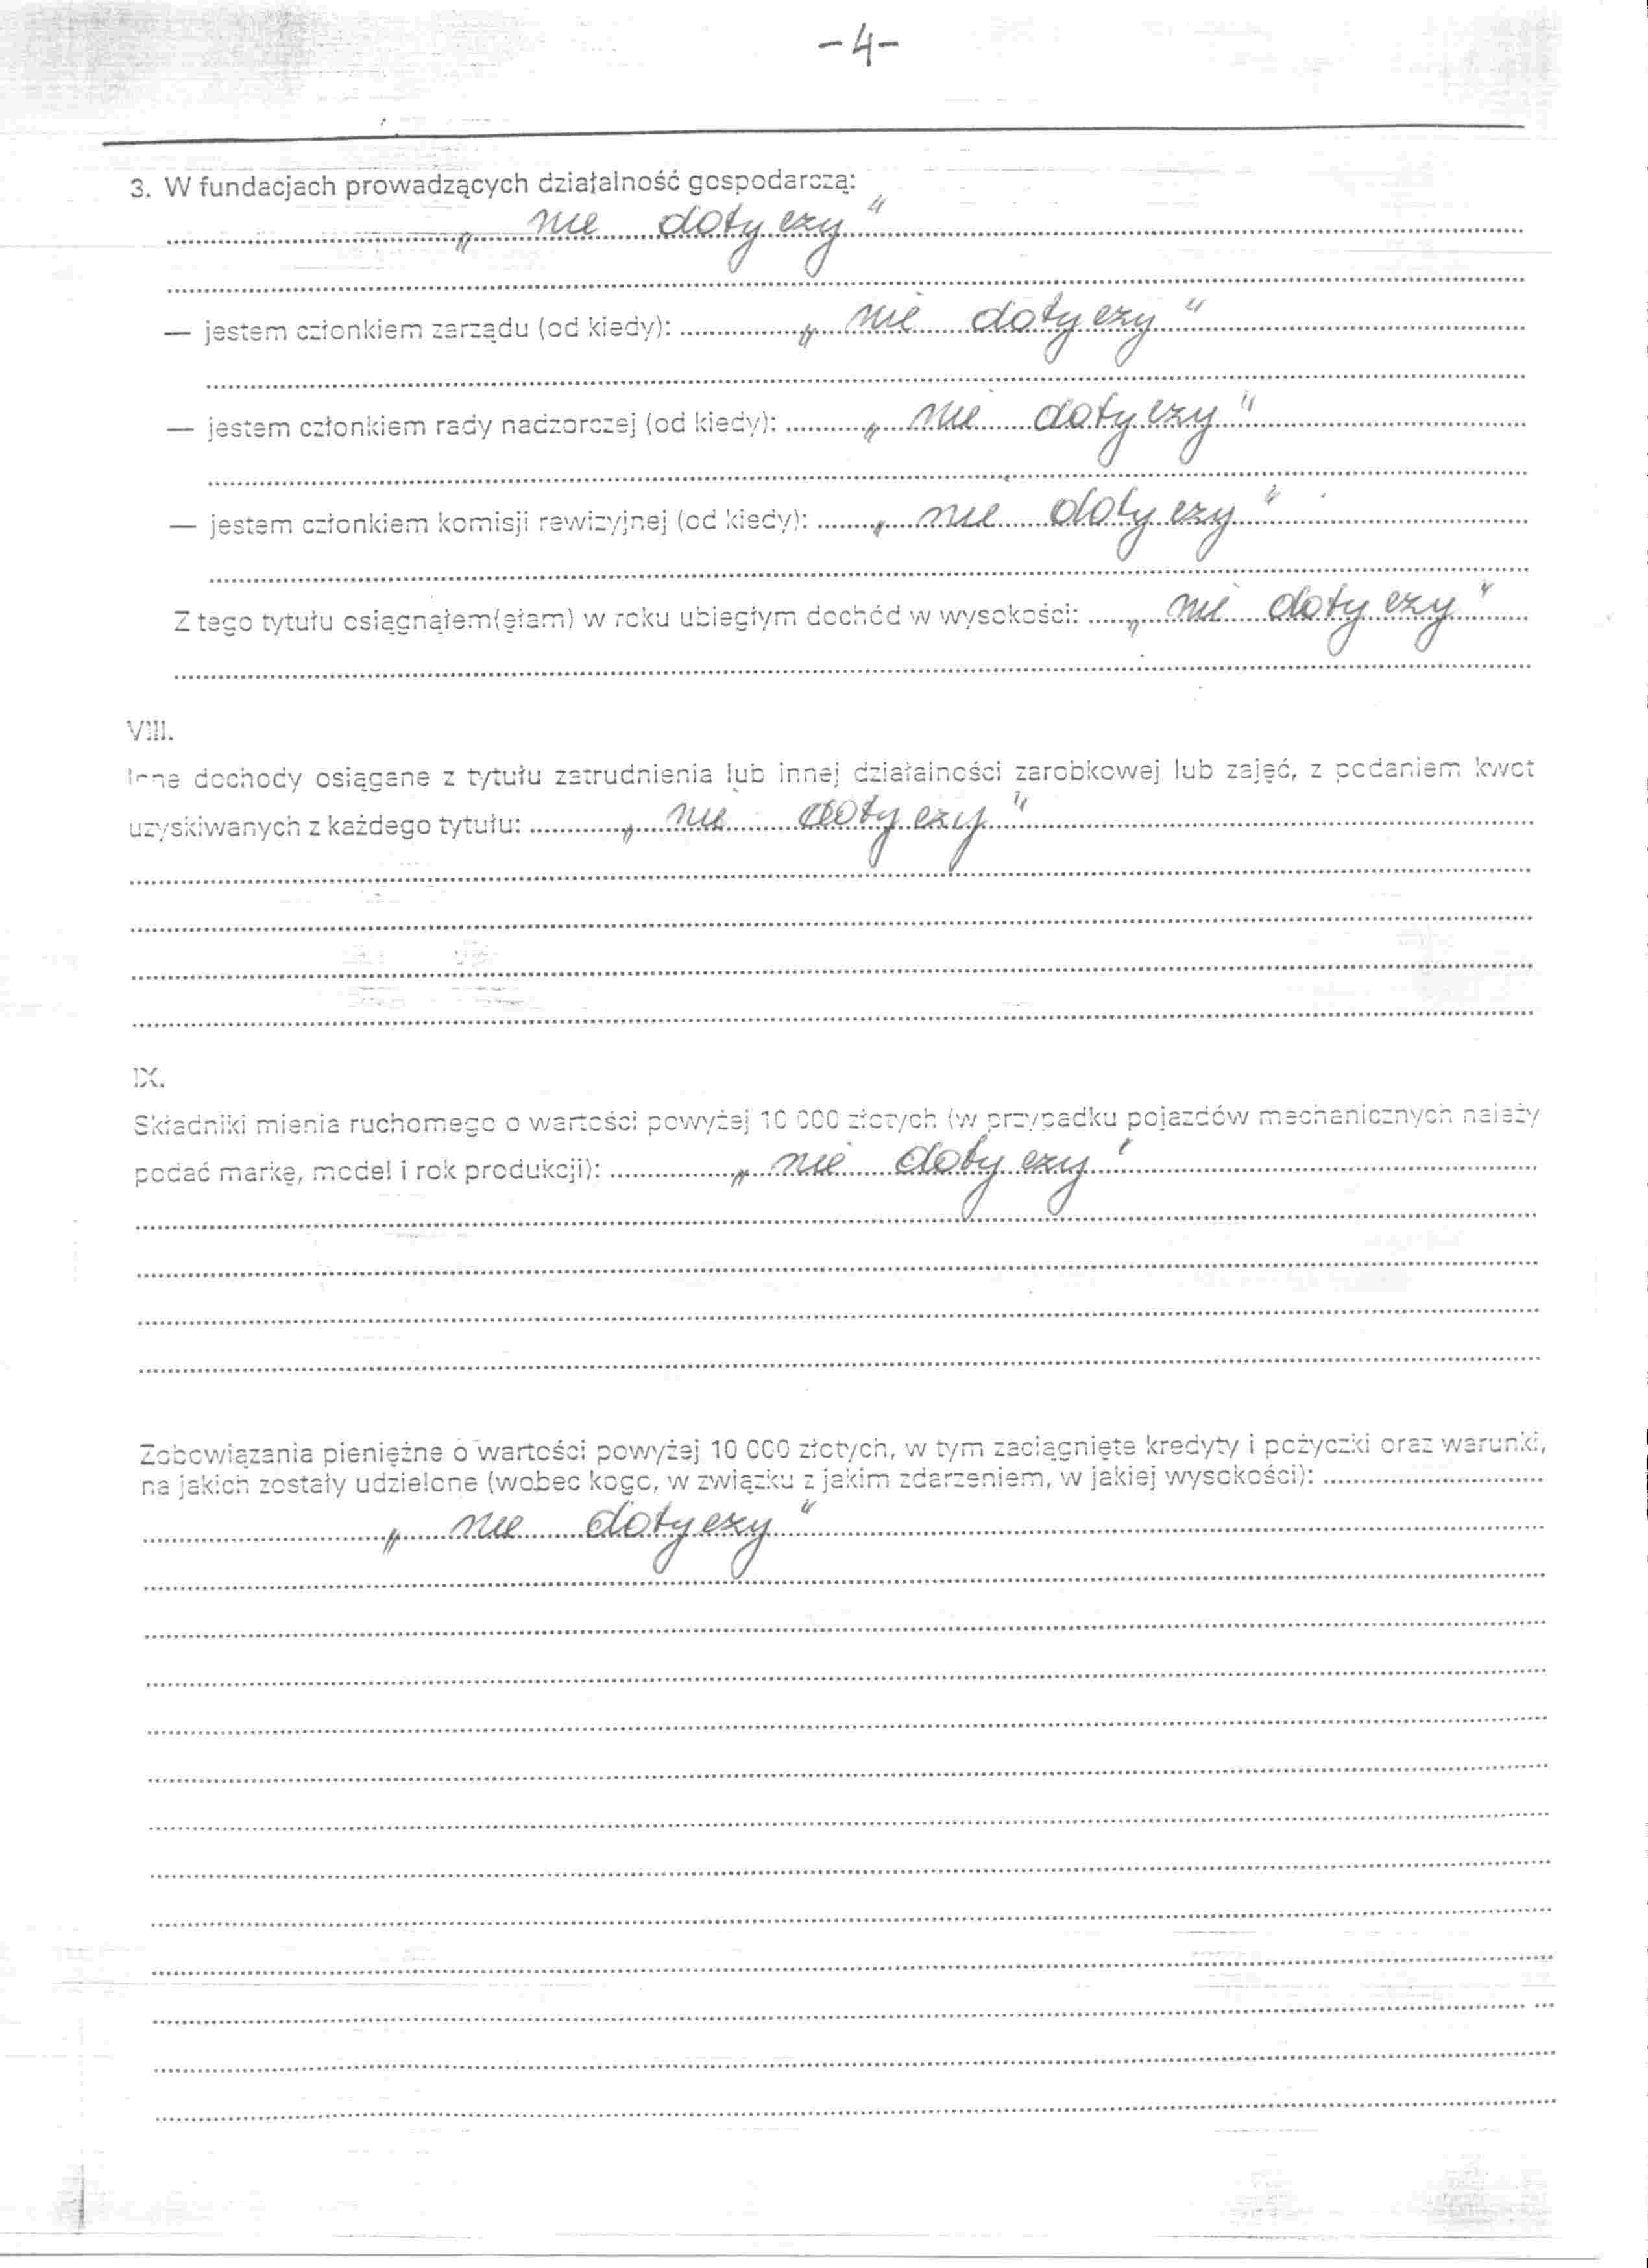 -4-
3. W fundacjach prowadzących działalność gospodarczą:
„ nie dotyczy "
— jestem członkiem zarządu (od kiedy): „ nie dotyczy "
— jestem członkiem rady nadzorczej (od kiedy): „ nie dotyczy "
— jestem członkiem komisji rewizyjnej (od kiedy): „ nie dotyczy "
Z tego tytułu osiągnąłem(ęłam) w roku ubiegłym dochód w wysokości: „ nie dotyczy "
VIII.
Inne dochody osiągane z tytułu zatrudnienia lub innej działalności zarobkowej lub zajęć, z podaniem kwot
uzyskiwanych z każdego tytułu: „ nie dotyczy "
IX.
Składniki mienia ruchomego o wartości powyżej 10 000 złotych (w przypadku pojazdów mechanicznych należy
podać markę, model i rok produkcji): „ nie dotyczy "
Zobowiązania pieniężne o wartości powyżej 10 000 złotych, w tym zaciągnięte kredyty i pożyczki oraz warunki,
na jakich zostały udzielone (wobec kogo, w związku z jakim zdarzeniem, w jakiej wysokości):
„ nie dotyczy "